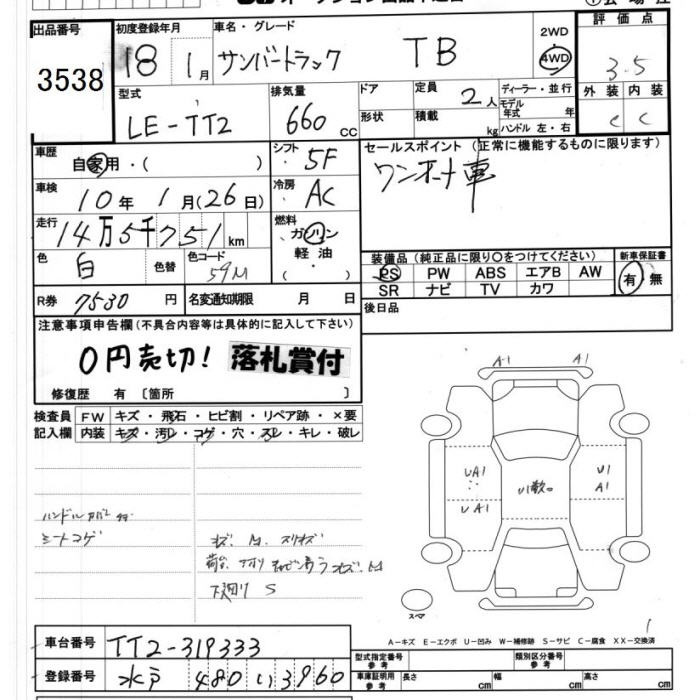 出品番号
3538
初度登録年月
18 1月
車名・グレード
サンバートラック TB
2WD
4WD
評価点
3.5
外装 内装
C C
型式
LE-TT2
排気量
660 cc
ドア
形状
定員
2人
積載
kg
ディーラー・並行
モデル年式 年
ハンドル 左・右
車歴
自家用・( )
シフト
5F
セールスポイント(正常に機能するものに限ります)
ワンオーナ車
車検
10年 1月(26日)
冷房
AC
走行
14万5千751km
燃料
ガソリン
軽油
( )
色
白
色替
色コード
59M
装備品(純正品に限り○をつけてください)
PS PW ABS エアB AW
SR ナビ TV カワ
新車保証書
有・無
R券 7530円
名変通知期限 月 日
後日品
注意事項申告欄(不具合内容等は具体的に記入して下さい)
0円売切! 落札賞付
修復歴 有 〔箇所 〕
検査員記入欄
FW キズ・飛石・ヒビ割・リペア跡・×要
内装 キズ・汚レ・コゲ・穴・スレ・キレ・破レ
シートコゲ
下廻り S
A1 A1
UA1
UA1
U1
A1
スペア
A-キズ E-エクボ U-凹み W-補修跡 S-サビ C-腐食 XX-交換済
車台番号 TT2-319333
登録番号 水戸 480 い 3960
型式指定番号 参考
類別区分番号 参考
車庫証明用 参考
長さ cm 幅 cm 高さ cm